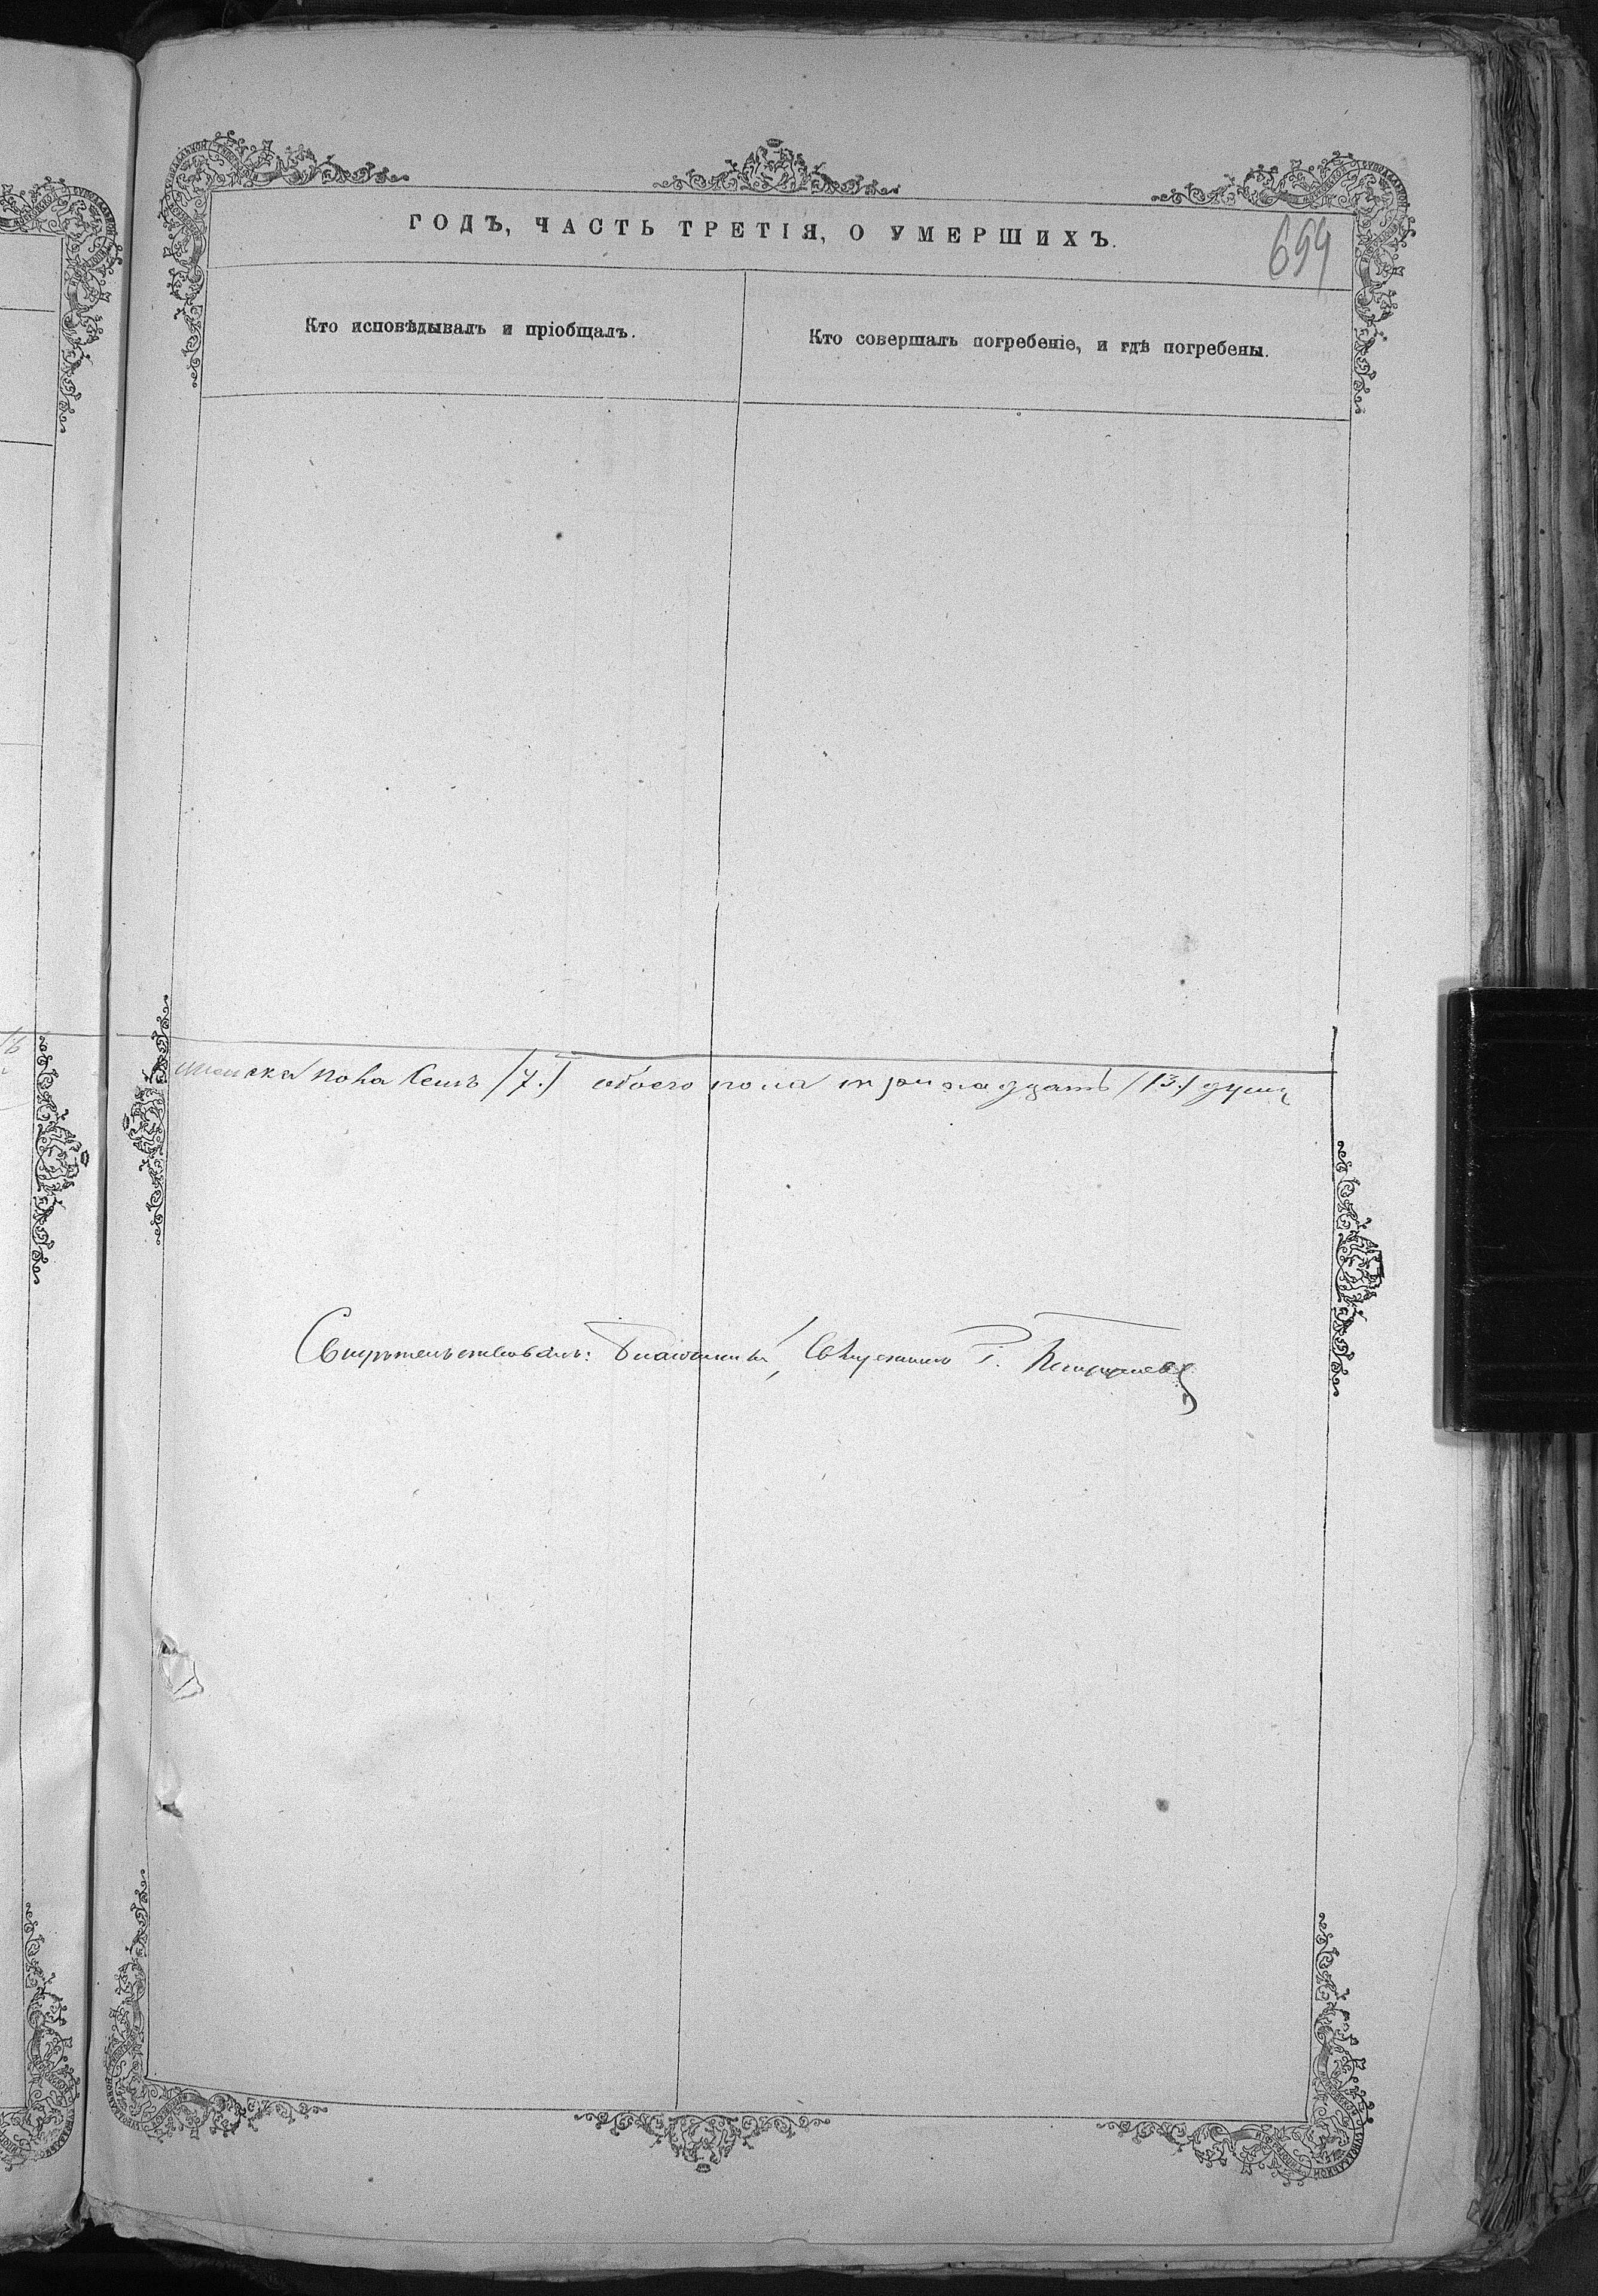 ГОДЪ, ЧАСТЬ ТРЕТІЯ, О УМЕРШИХЪ.
694
Кто исповѣдывалъ и пріобщалъ.
Кто совершалъ погребеніе, и гдѣ погребены.
женска пола семь /7./ обоего пола тринадцать /13./ душъ
Свидѣтельствовалъ: Благочинный, Священникъ Г.